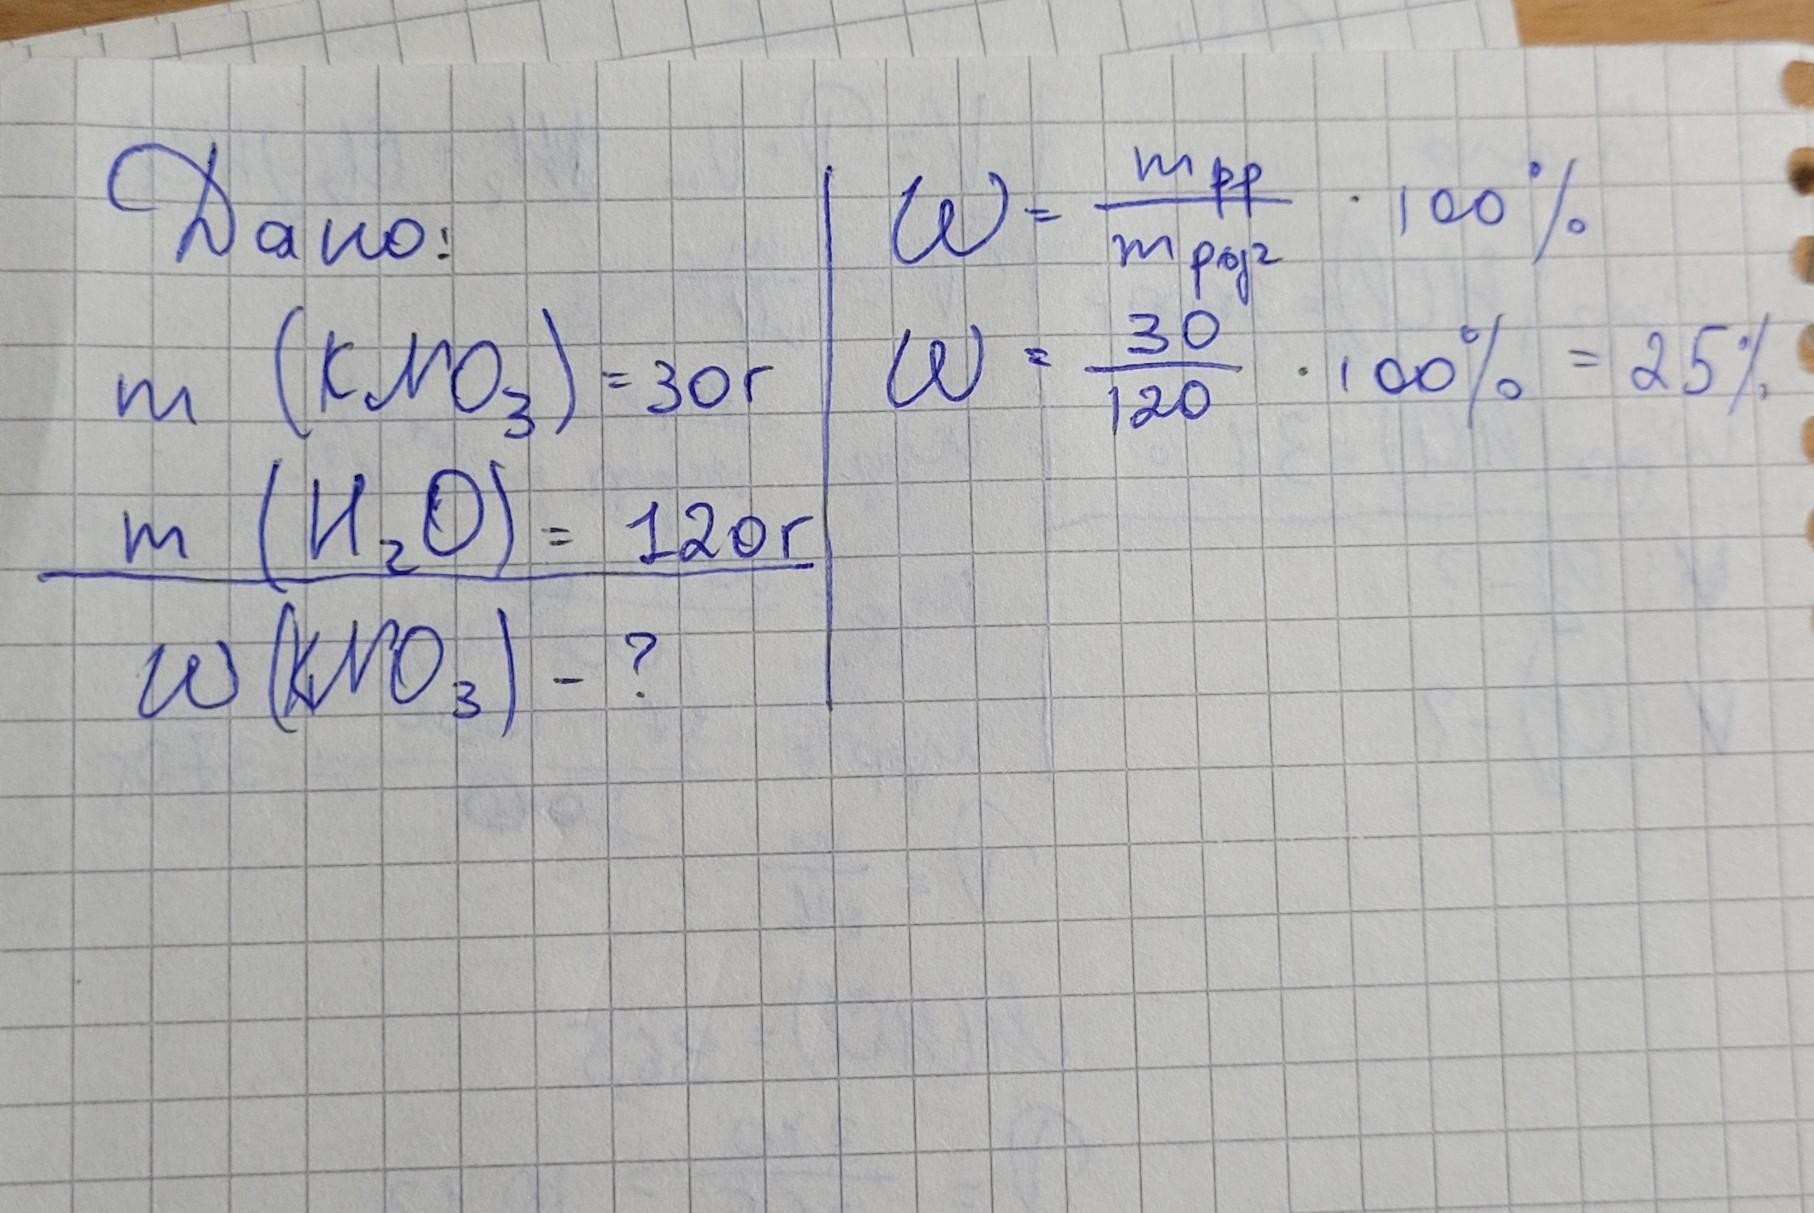 Дано:
m (KNO₃) = 30г
m (H₂O) = 120г
w (KNO₃) - ?
W = m рр / m · 100%
W = 30 / 120 · 100% = 25%